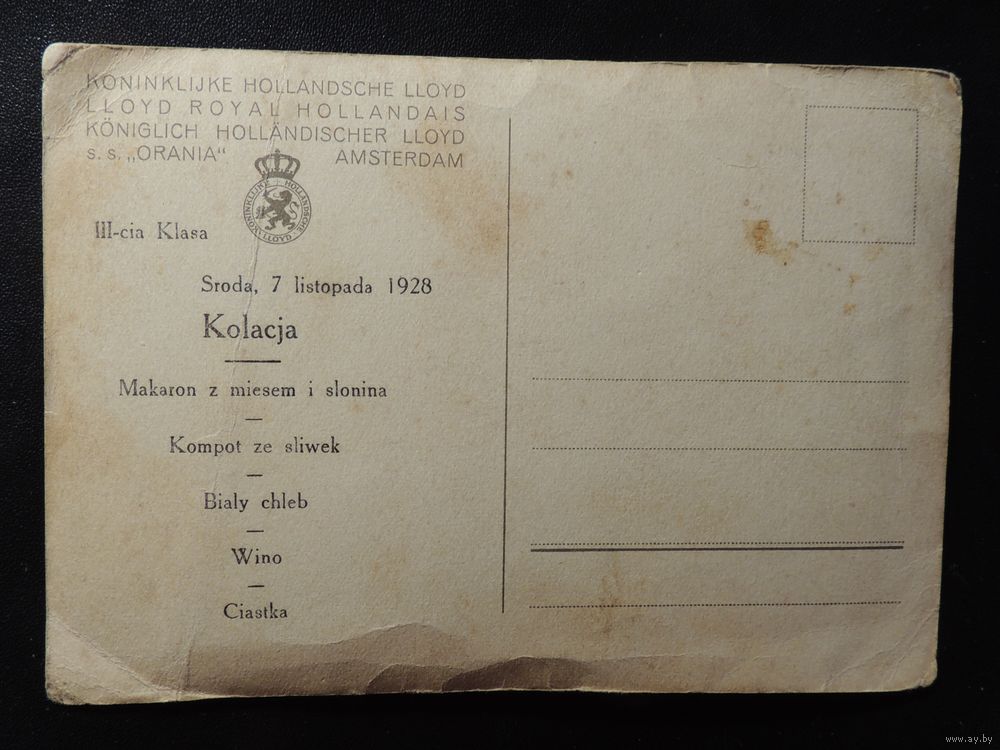 KONINKLIJKE HOLLANDSCHE LLOYD
LLOYD ROYAL HOLLANDAIS
KÖNIGLICH HOLLÄNDISCHER LLOYD
s. s. „ORANIA“ AMSTERDAM
KONINKLIJKE HOLLANDSCHE LLOYD
III-cia Klasa
Sroda, 7 listopada 1928
Kolacja
Makaron z miesem i slonina
Kompot ze sliwek
Bialy chleb
Wino
Ciastka
www.ay.by